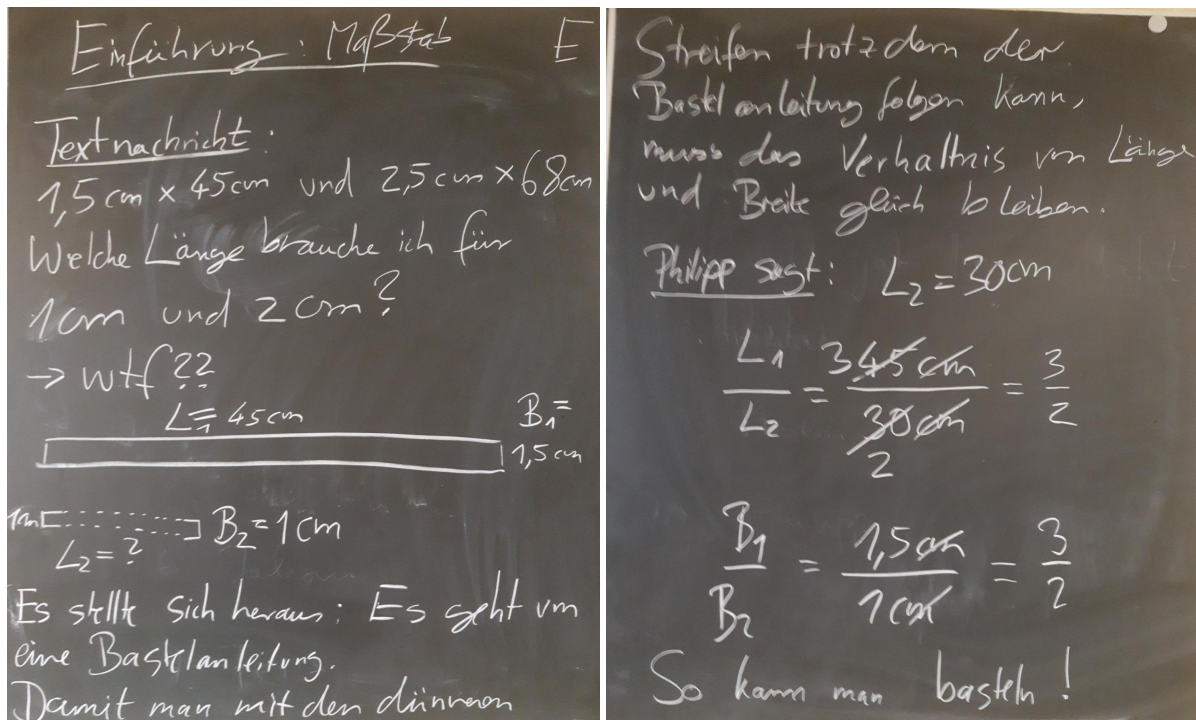 Einführung: Maßstab E
Textnachricht:
1,5 cm × 45cm und 2,5 cm × 68cm
Welche Länge brauche ich für
1cm und 2 cm?
→ wtf??
L₁ = 45cm B₁ =
1,5 cm
1cm B₂ = 1cm
L₂ = ?
Es stellte sich heraus: Es geht um
eine Bastelanleitung.
Damit man mit den dünneren
Streifen trotzdem der
Bastelanleitung folgen kann,
muss das Verhältnis von Länge
und Breite gleich bleiben.
Philipp sagt: L₂ = 30cm
L₁ / L₂ = 3 45cm / 30cm 2 = 3 / 2
B₁ / B₂ = 1,5cm / 1cm = 3 / 2
So kann man basteln!